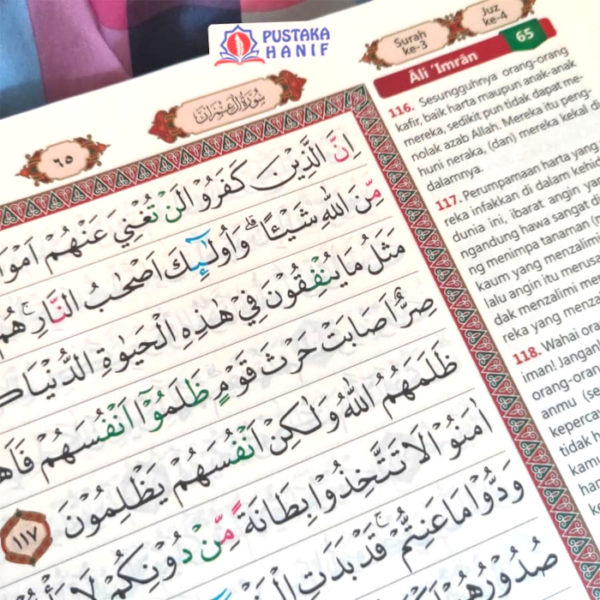 PUSTAKA
HANIF
Surah
ke-3
Juz
ke-4
65
Āli 'Imrān
سُوْرَةُ اٰلِ عِمْرٰنَ
٦٥
اِنَّ الَّذِيْنَ كَفَرُوْا لَنْ تُغْنِيَ عَنْهُمْ اَمْوَا
مِّنَ اللّٰهِ شَيْـًٔاۗ وَاُولٰۤىِٕكَ اَصْحٰبُ النَّارِۚ هُمْ
مَثَلُ مَا يُنْفِقُوْنَ فِيْ هٰذِهِ الْحَيٰوةِ الدُّنْيَا
صِرٌّ اَصَابَتْ حَرْثَ قَوْمٍ ظَلَمُوْٓا اَنْفُسَهُمْ فَاَهْ
ظَلَمَهُمُ اللّٰهُ وَلٰكِنْ اَنْفُسَهُمْ يَظْلِمُوْنَ ١١٧
اٰمَنُوْا لَا تَتَّخِذُوْا بِطَانَةً مِّنْ دُوْنِكُمْ لَا يَأْ
وَدُّوْا مَا عَنِتُّمْۚ قَدْ بَدَتِ الْبَ
صُدُوْرُهُمْ
116. Sesungguhnya orang-orang
kafir, baik harta maupun anak-anak
mereka, sedikit pun tidak dapat me-
nolak azab Allah. Mereka itu peng-
huni neraka, (dan) mereka kekal di
dalamnya.
117. Perumpamaan harta yang
reka infakkan di dalam kehid
dunia ini, ibarat angin yan
ngandung hawa sangat di
ng menimpa tanaman (m
kaum yang menzalimi
lalu angin itu merusa
dak menzalimi me
reka yang menza
118. Wahai ora
iman! Jangan
orang-oran
anmu (se
keperca
tidak h
kamu
han
ke